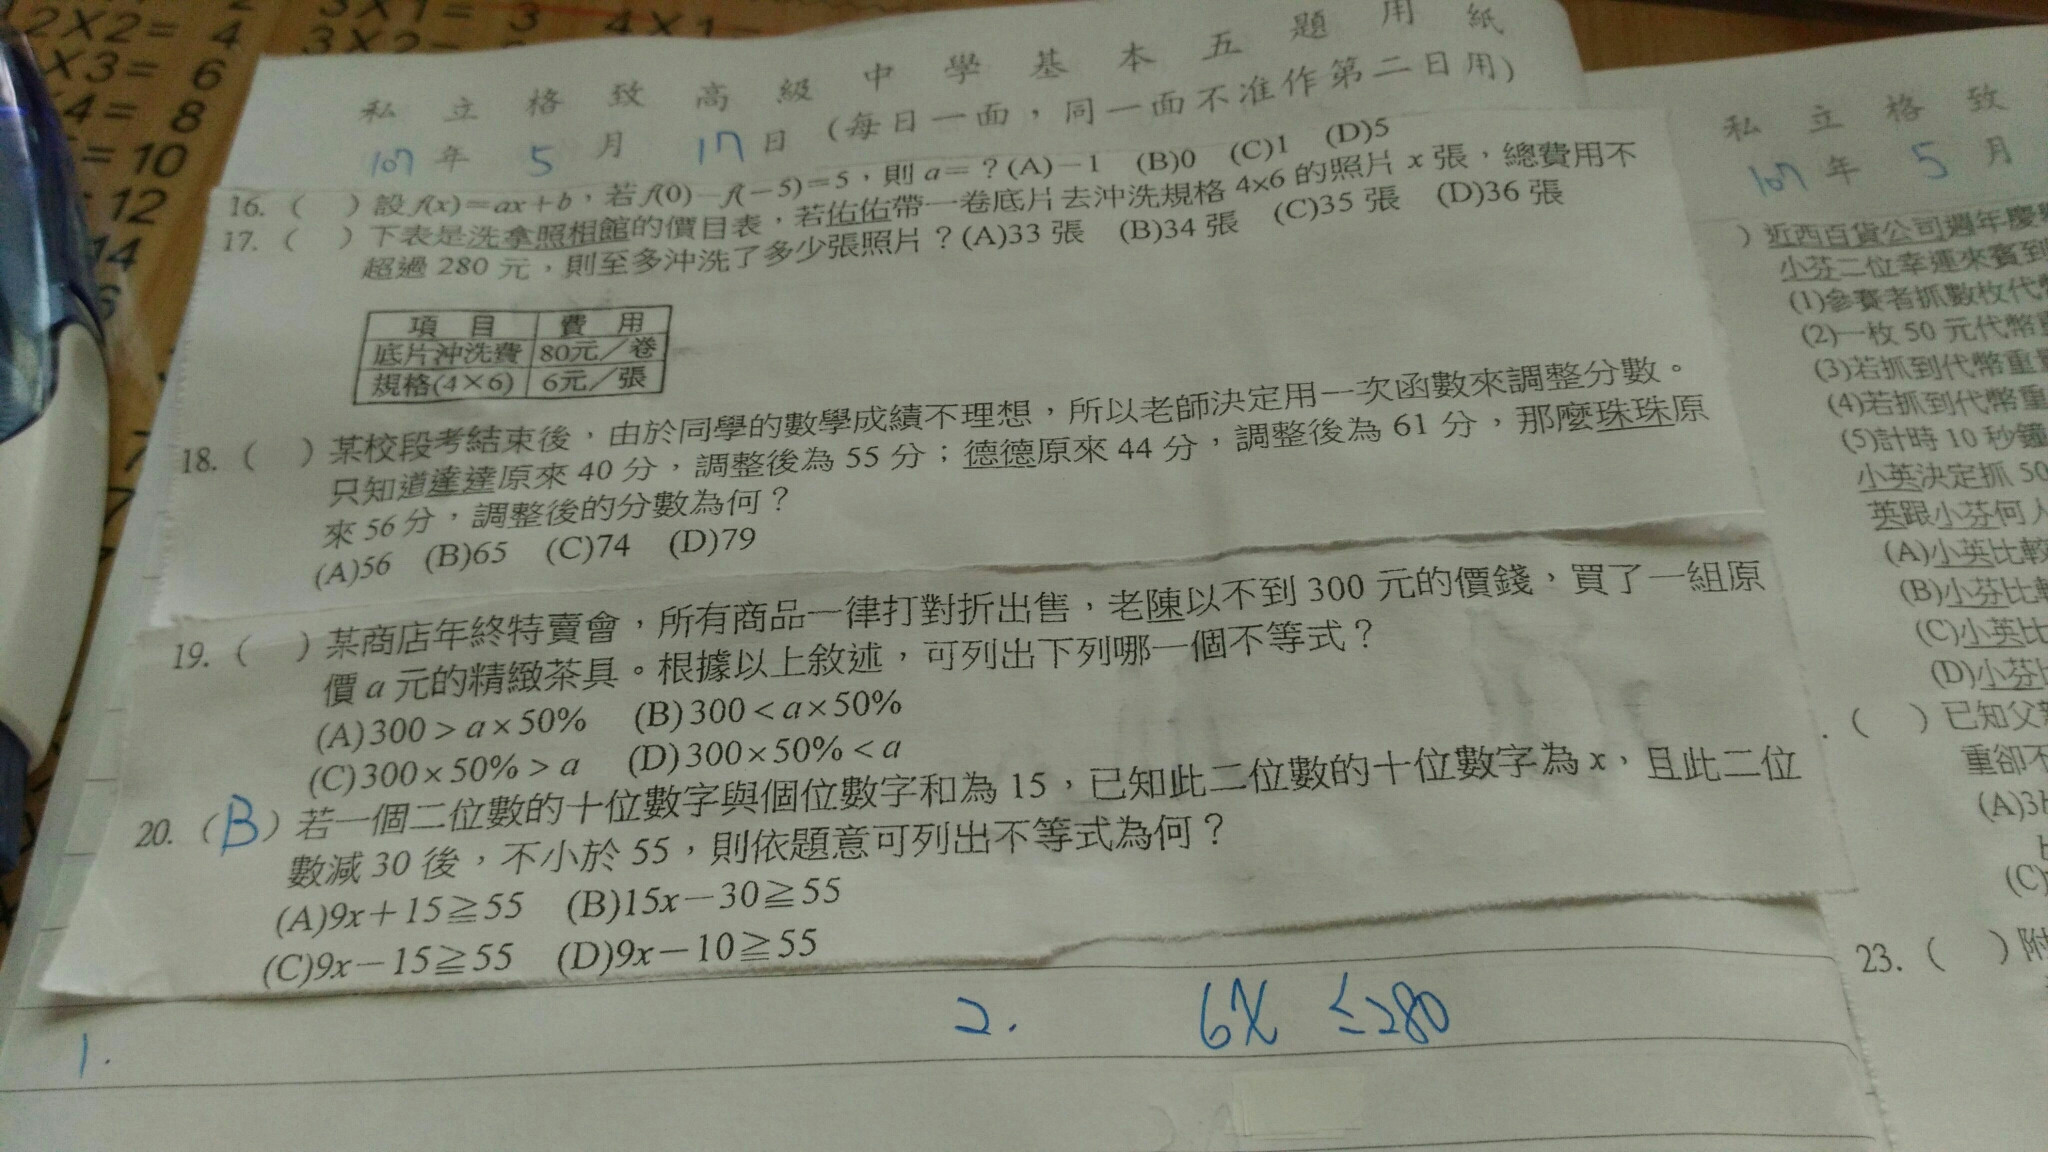 2X2= 4
3X1= 3
4X1=
X3= 6
3X2=
X4= 8
= 10
12
14
私立格致高級中學基本五題用紙
107年 5月 17日 (每日一面,同一面不准作第二日用)
16. ( ) 設 f(x)=ax+b,若 f(0)-f(-5)=5,則 a=?(A)-1 (B)0 (C)1 (D)5
17. ( ) 下表是洗拿照相館的價目表,若佑佑帶一卷底片去沖洗規格 4×6 的照片 x 張,總費用不
超過 280 元,則至多沖洗了多少張照片?(A)33 張 (B)34 張 (C)35 張 (D)36 張
項 目 費 用
底片沖洗費 80元/卷
規格(4×6) 6元/張
18. ( ) 某校段考結束後,由於同學的數學成績不理想,所以老師決定用一次函數來調整分數。
只知道達達原來 40 分,調整後為 55 分;德德原來 44 分,調整後為 61 分,那麼珠珠原
來 56 分,調整後的分數為何?
(A)56 (B)65 (C)74 (D)79
19. ( ) 某商店年終特賣會,所有商品一律打對折出售,老陳以不到 300 元的價錢,買了一組原
價 a 元的精緻茶具。根據以上敘述,可列出下列哪一個不等式?
(A)300>a×50% (B)300<a×50%
(C)300×50%>a (D)300×50%<a
20. (B) 若一個二位數的十位數字與個位數字和為 15,已知此二位數的十位數字為 x,且此二位
數減 30 後,不小於 55,則依題意可列出不等式為何?
(A)9x+15≧55 (B)15x-30≧55
(C)9x-15≧55 (D)9x-10≧55
1.
2. 6x ≤280
私立格致
107年 5月
) 近西百貨公司週年慶
小芬二位幸運來賓到
(1)參賽者抓數枚代幣
(2)一枚 50 元代幣
(3)若抓到代幣重
(4)若抓到代幣重
(5)計時 10 秒鐘
小英決定抓 50
英跟小芬何人
(A)小英比較
(B)小芬比
(C)小英比
(D)小芬
( ) 已知父
重卻不
(A)3
(C)
23. ( ) 附